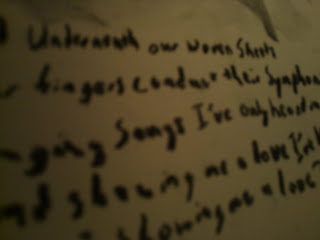 Underneath our woven sheets
fingers conduct their symphon
nging songs I've only heard in
nd showing me a love I'v
showing me a love